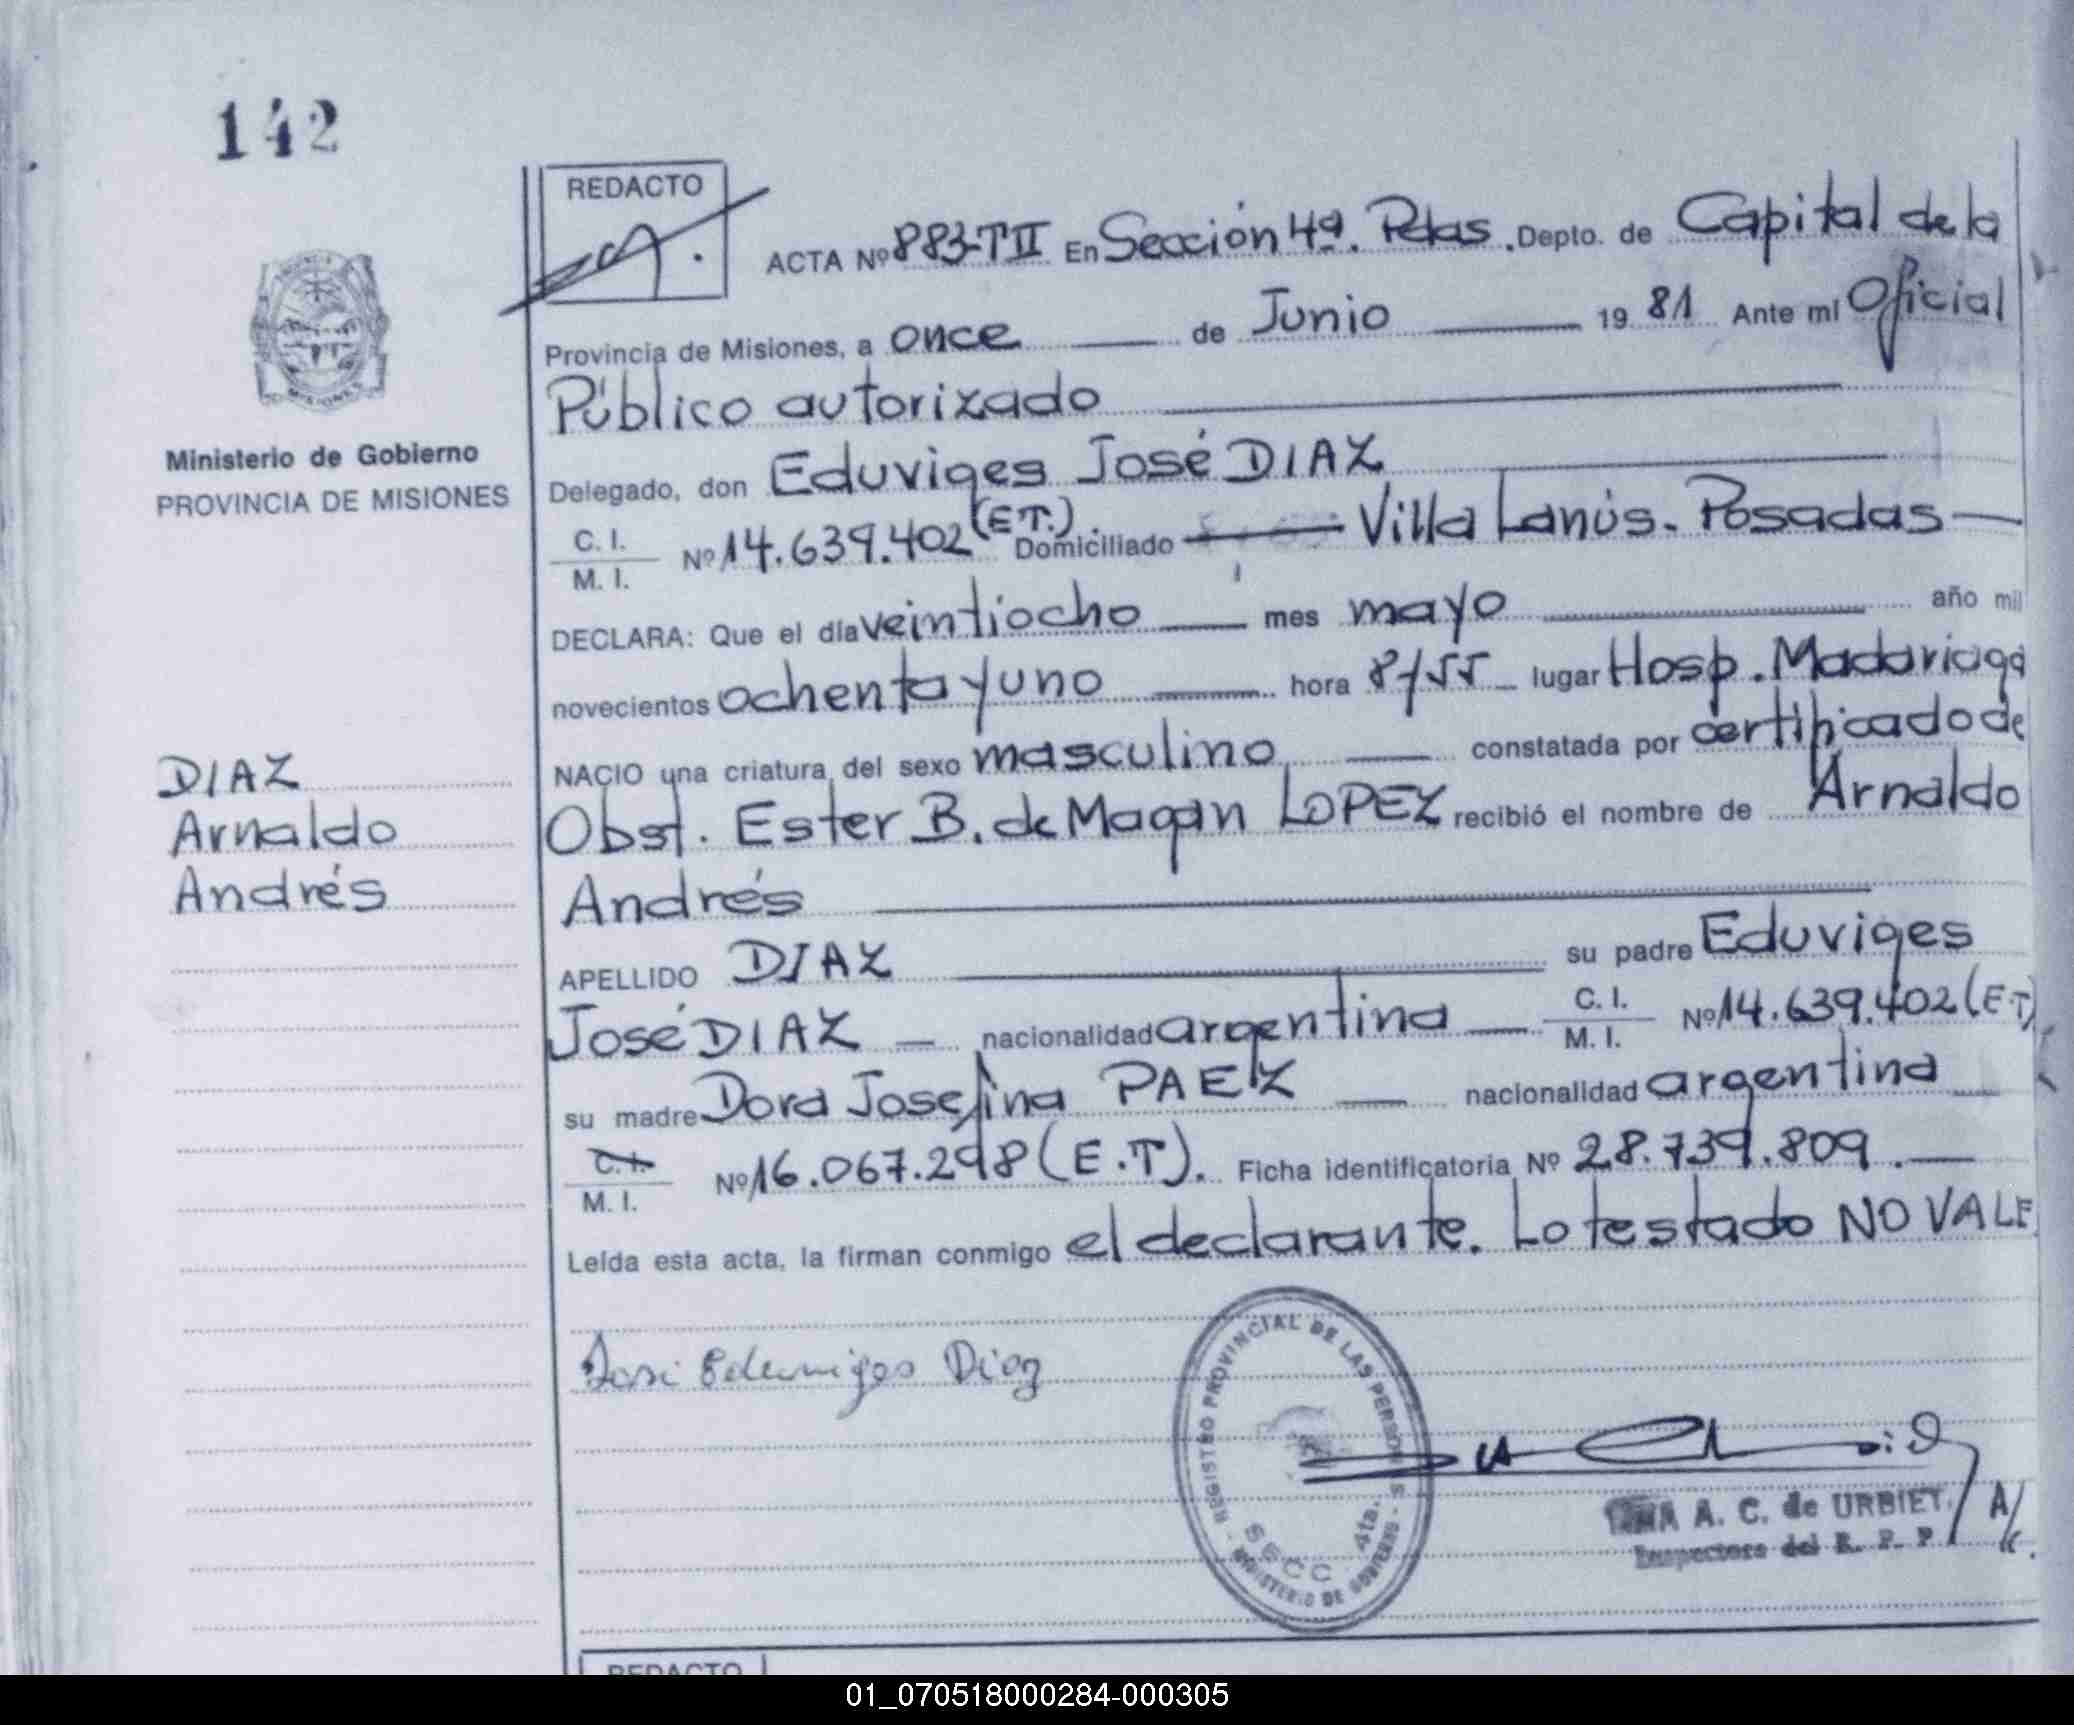 142
REDACTO
ACTA Nº 883-TII En Sección 4ª. Pdas. Depto. de Capital de la
Provincia de Misiones, a once de Junio 19 81 Ante mí Oficial
Público autorizado
Delegado, don Eduviges José DIAZ
C. I.
M. I.
Nº 14.639.402 (E.T.). Domiciliado Villa Lanús. Posadas
DECLARA: Que el día veintiocho mes mayo año mil
novecientos ochenta y uno hora 8/55 lugar Hosp. Madariaga
NACIO una criatura del sexo masculino constatada por certificado de
Obst. Ester B. de Magan LOPEZ recibió el nombre de Arnaldo
Andrés
APELLIDO DIAZ su padre Eduviges
José DIAZ nacionalidad argentina C. I. M. I. Nº 14.639.402 (E.T)
su madre Dora Josefina PAEZ nacionalidad argentina
C. I.
M. I.
Nº 16.067.298 (E.T). Ficha identificatoria Nº 28.739.809.
Leída esta acta, la firman conmigo el declarante. Lo testado NO VALE
Ministerio de Gobierno
PROVINCIA DE MISIONES
DIAZ
Arnaldo
Andrés
José Eduviges Diaz
REGISTRO PROVINCIAL DE LAS PERSONAS
SECC 4ta.
MINISTERIO DE GOBIERNO
A. C. de URBIET
Inspectora del R. P. P
REDACTO
01_070518000284-000305